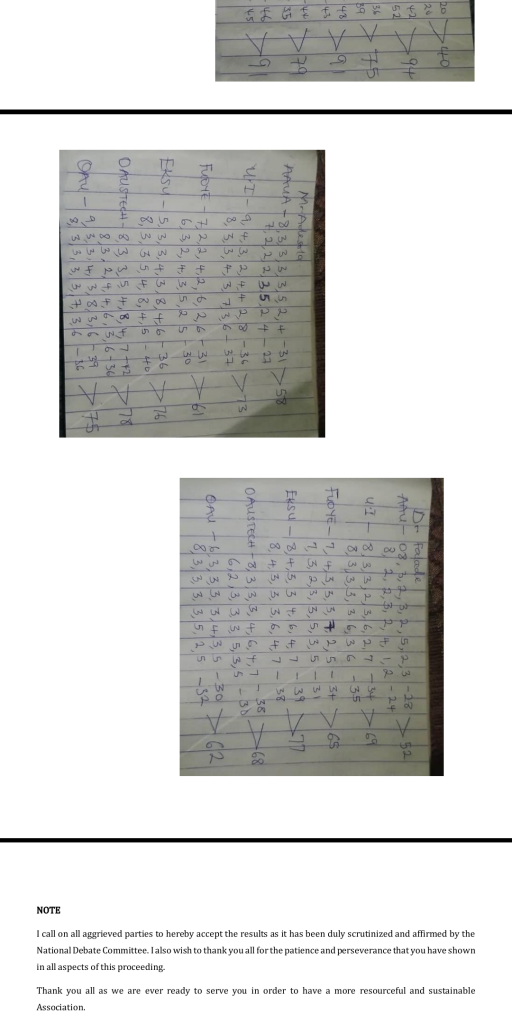 20
26 > 40
42
52 > 94
36
39 > 75
48
43 > 91
44
35 > 79
46
45 > 91
Mr. Adesola
AAUA - 8,3,3,3,3,5,2,4 - 31
7,2,2,2,3,5,2,4 - 27 > 58
U.I - 9,4,3,2,4,4,2,8 - 36
8,3,3,4,3,7,3,6 - 37 > 73
FUOYE - 7,2,2,4,2,6,2,6 - 31
6,3,2,4,3,5,2,5 - 30 > 61
EKSU - 5,3,3,4,3,8,4,6 - 36
8,3,3,5,4,8,4,5 - 40 > 76
OAUSTECH - 8,3,3,5,4,8,4,7 - 42
8,3,2,4,4,6,3,6 - 36 > 78
OAU - 9,3,3,4,3,8,3,6 - 39
8,3,3,3,3,7,3,6 - 36 > 75
Dr
AAU - 08,3,2,3,2,5,2,3 - 28
8,2,2,3,2,4,1,2 - 24 > 52
U.I - 8,3,3,2,3,6,2,7 - 34
8,3,3,3,3,6,3,6 - 35 > 69
FUOYE - 7,4,3,3,3,7,2,5 - 34
7,3,2,3,3,5,3,5 - 31 > 65
EKSU - 8,4,3,3,4,6,4,7 - 39
8,4,3,3,3,6,4,7 - 38 > 77
OAUSTECH - 8,3,3,3,4,6,4,7 - 38
6,2,3,3,3,5,3,5 - 30 > 68
OAU - 6,3,3,3,3,4,3,5 - 30
8,3,3,3,3,5,2,5 - 32 > 62
NOTE
I call on all aggrieved parties to hereby accept the results as it has been duly scrutinized and affirmed by the
National Debate Committee. I also wish to thank you all for the patience and perseverance that you have shown
in all aspects of this proceeding.
Thank you all as we are ever ready to serve you in order to have a more resourceful and sustainable
Association.